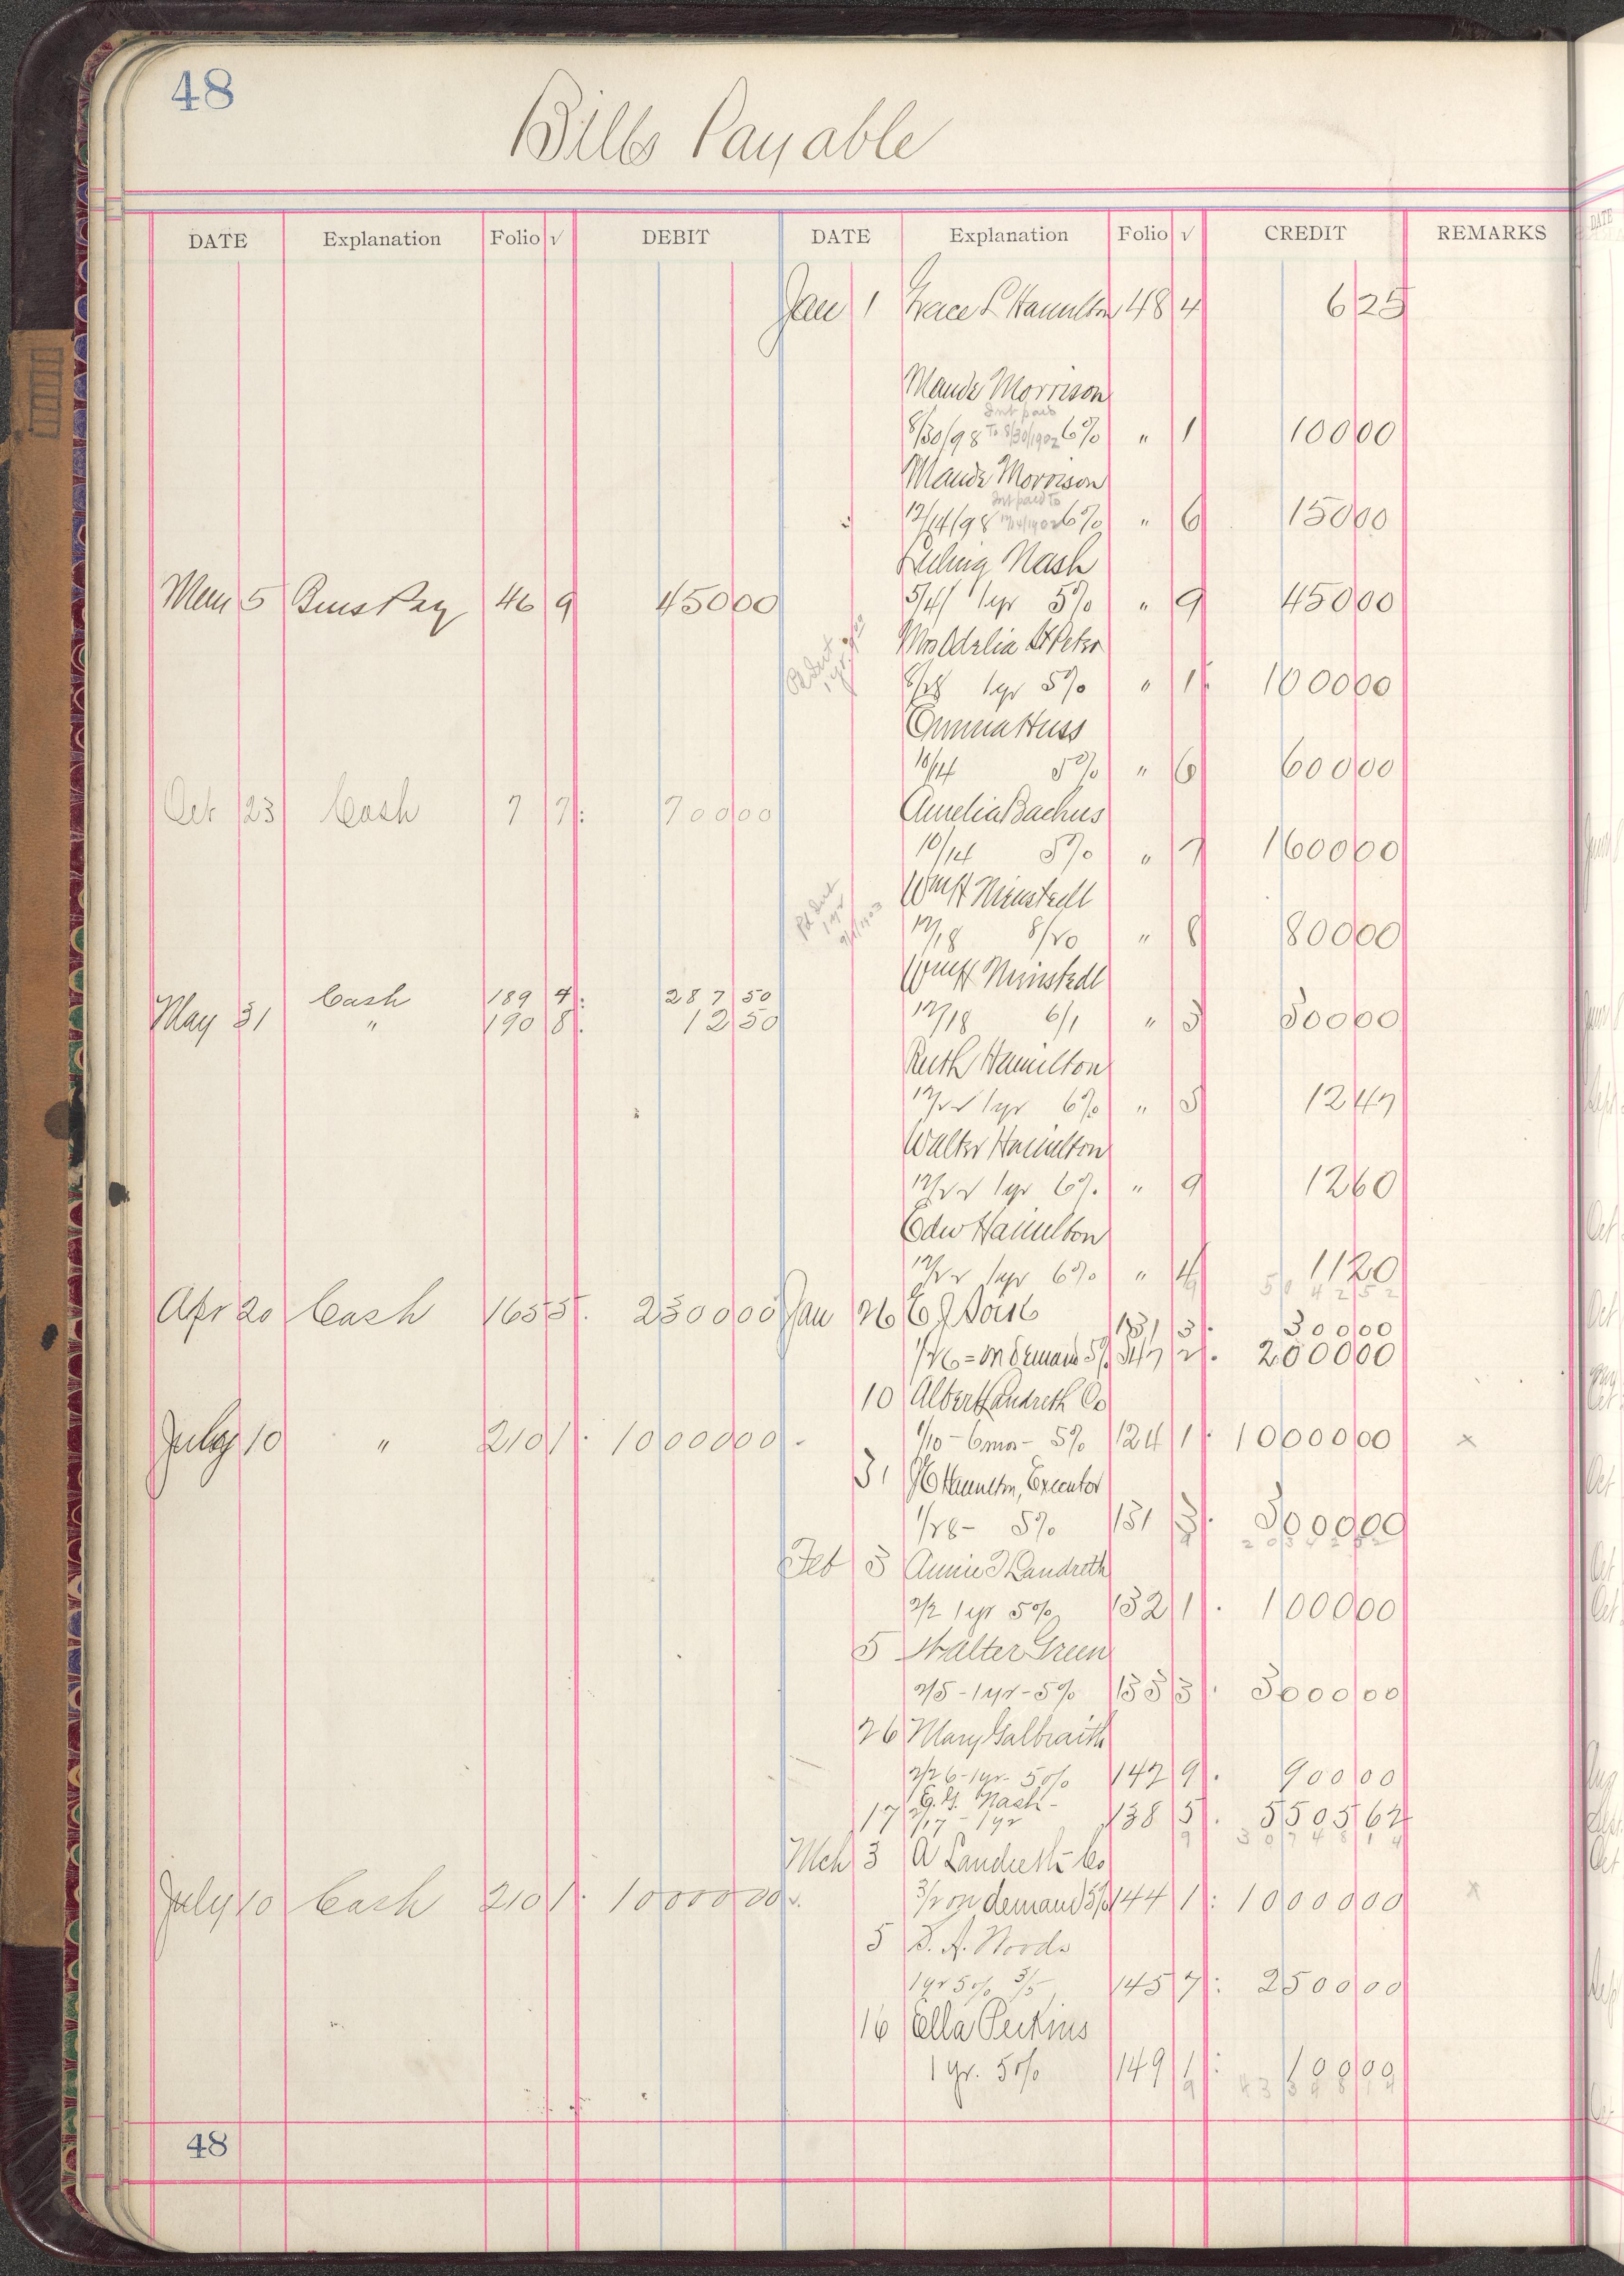 48
Bills Payable
DATE Explanation Folio √ DEBIT DATE Explanation Folio √ CREDIT REMARKS
Jan 1 Grace L Hamilton 48 4 6 25
Maude Morrison
Int paid
8/30/98 To 8/30/1902 6% " 1 100 00
Maude Morrison
Int paid to
12/14/98 12/14/1902 6% " 6 150 00
Nash
5 Bills Pay 46 9 450 00 5/4/ 1 yr 5% " 9 450 00
Mrs Odelia St Peter
1 yr 5% " 1 1000 00
Emma Huss
10/14 5% " 6 600 00
Oct 23 Cash 7 7 700 00 Amelia Bachus
10/14 5% " 7 1600 00
Pd Int
1 yr
Wm H Nienstedt
12/18 8/20 " 8 800 00
Wm H Nienstedt
Cash 189 4 287 50
May 31 " 190 8 12 50 12/18 6/1 " 3 300 00
Ruth Hamilton
12/22 1 yr 6% " 5 12 47
Walter Hamilton
12/22 1 yr 6% " 9 12 60
Edw Hamilton
12/22 1 yr 6% " 4 11 20
5042 52
Apr 20 Cash 165 5 2300 00 Jan 26 131 3 300 00
1/26 = on demand 5% 147 2 2000 00
10 Albert Landreth Co
July 10 " 210 1 10000 00 1/10 - 6 mos - 5% 124 1 10000 00 x
31 Hamilton, Executor
1/28 - 5% 131 3 3000 00
20342 52
Feb 3 Annie T Landreth
2/2 1 yr 5% 132 1 1000 00
5 Walter Green
2/5 - 1 yr - 5% 133 3 3000 00
26 Mary Galbraith
2/26 - 1 yr - 5% 142 9 900 00
Nash -
17 2/17 - 1 yr 138 5 5505 62
9 30748 14
Mch 3 A Landreth Co
July 10 Cash 210 1 10000 00 3/2 on demand 5% 144 1 10000 00 x
5 S. A. Woods
1 yr 5% 3/5 145 7 2500 00
16 Ella Perkins
1 yr. 5% 149 1 100 00
9 43348 14
48